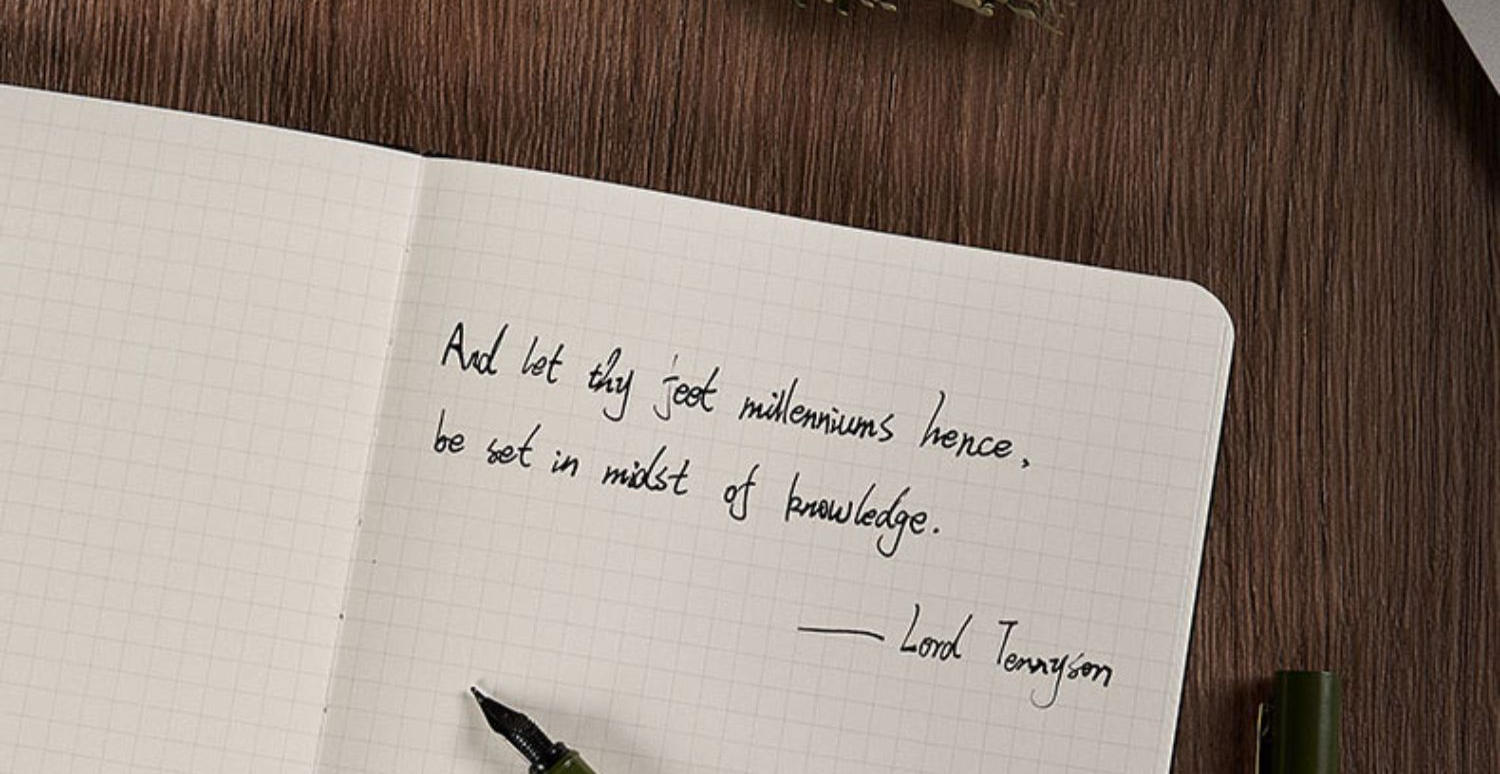 And let thy feet millenniums hence,
be set in midst of knowledge.
— Lord Tennyson